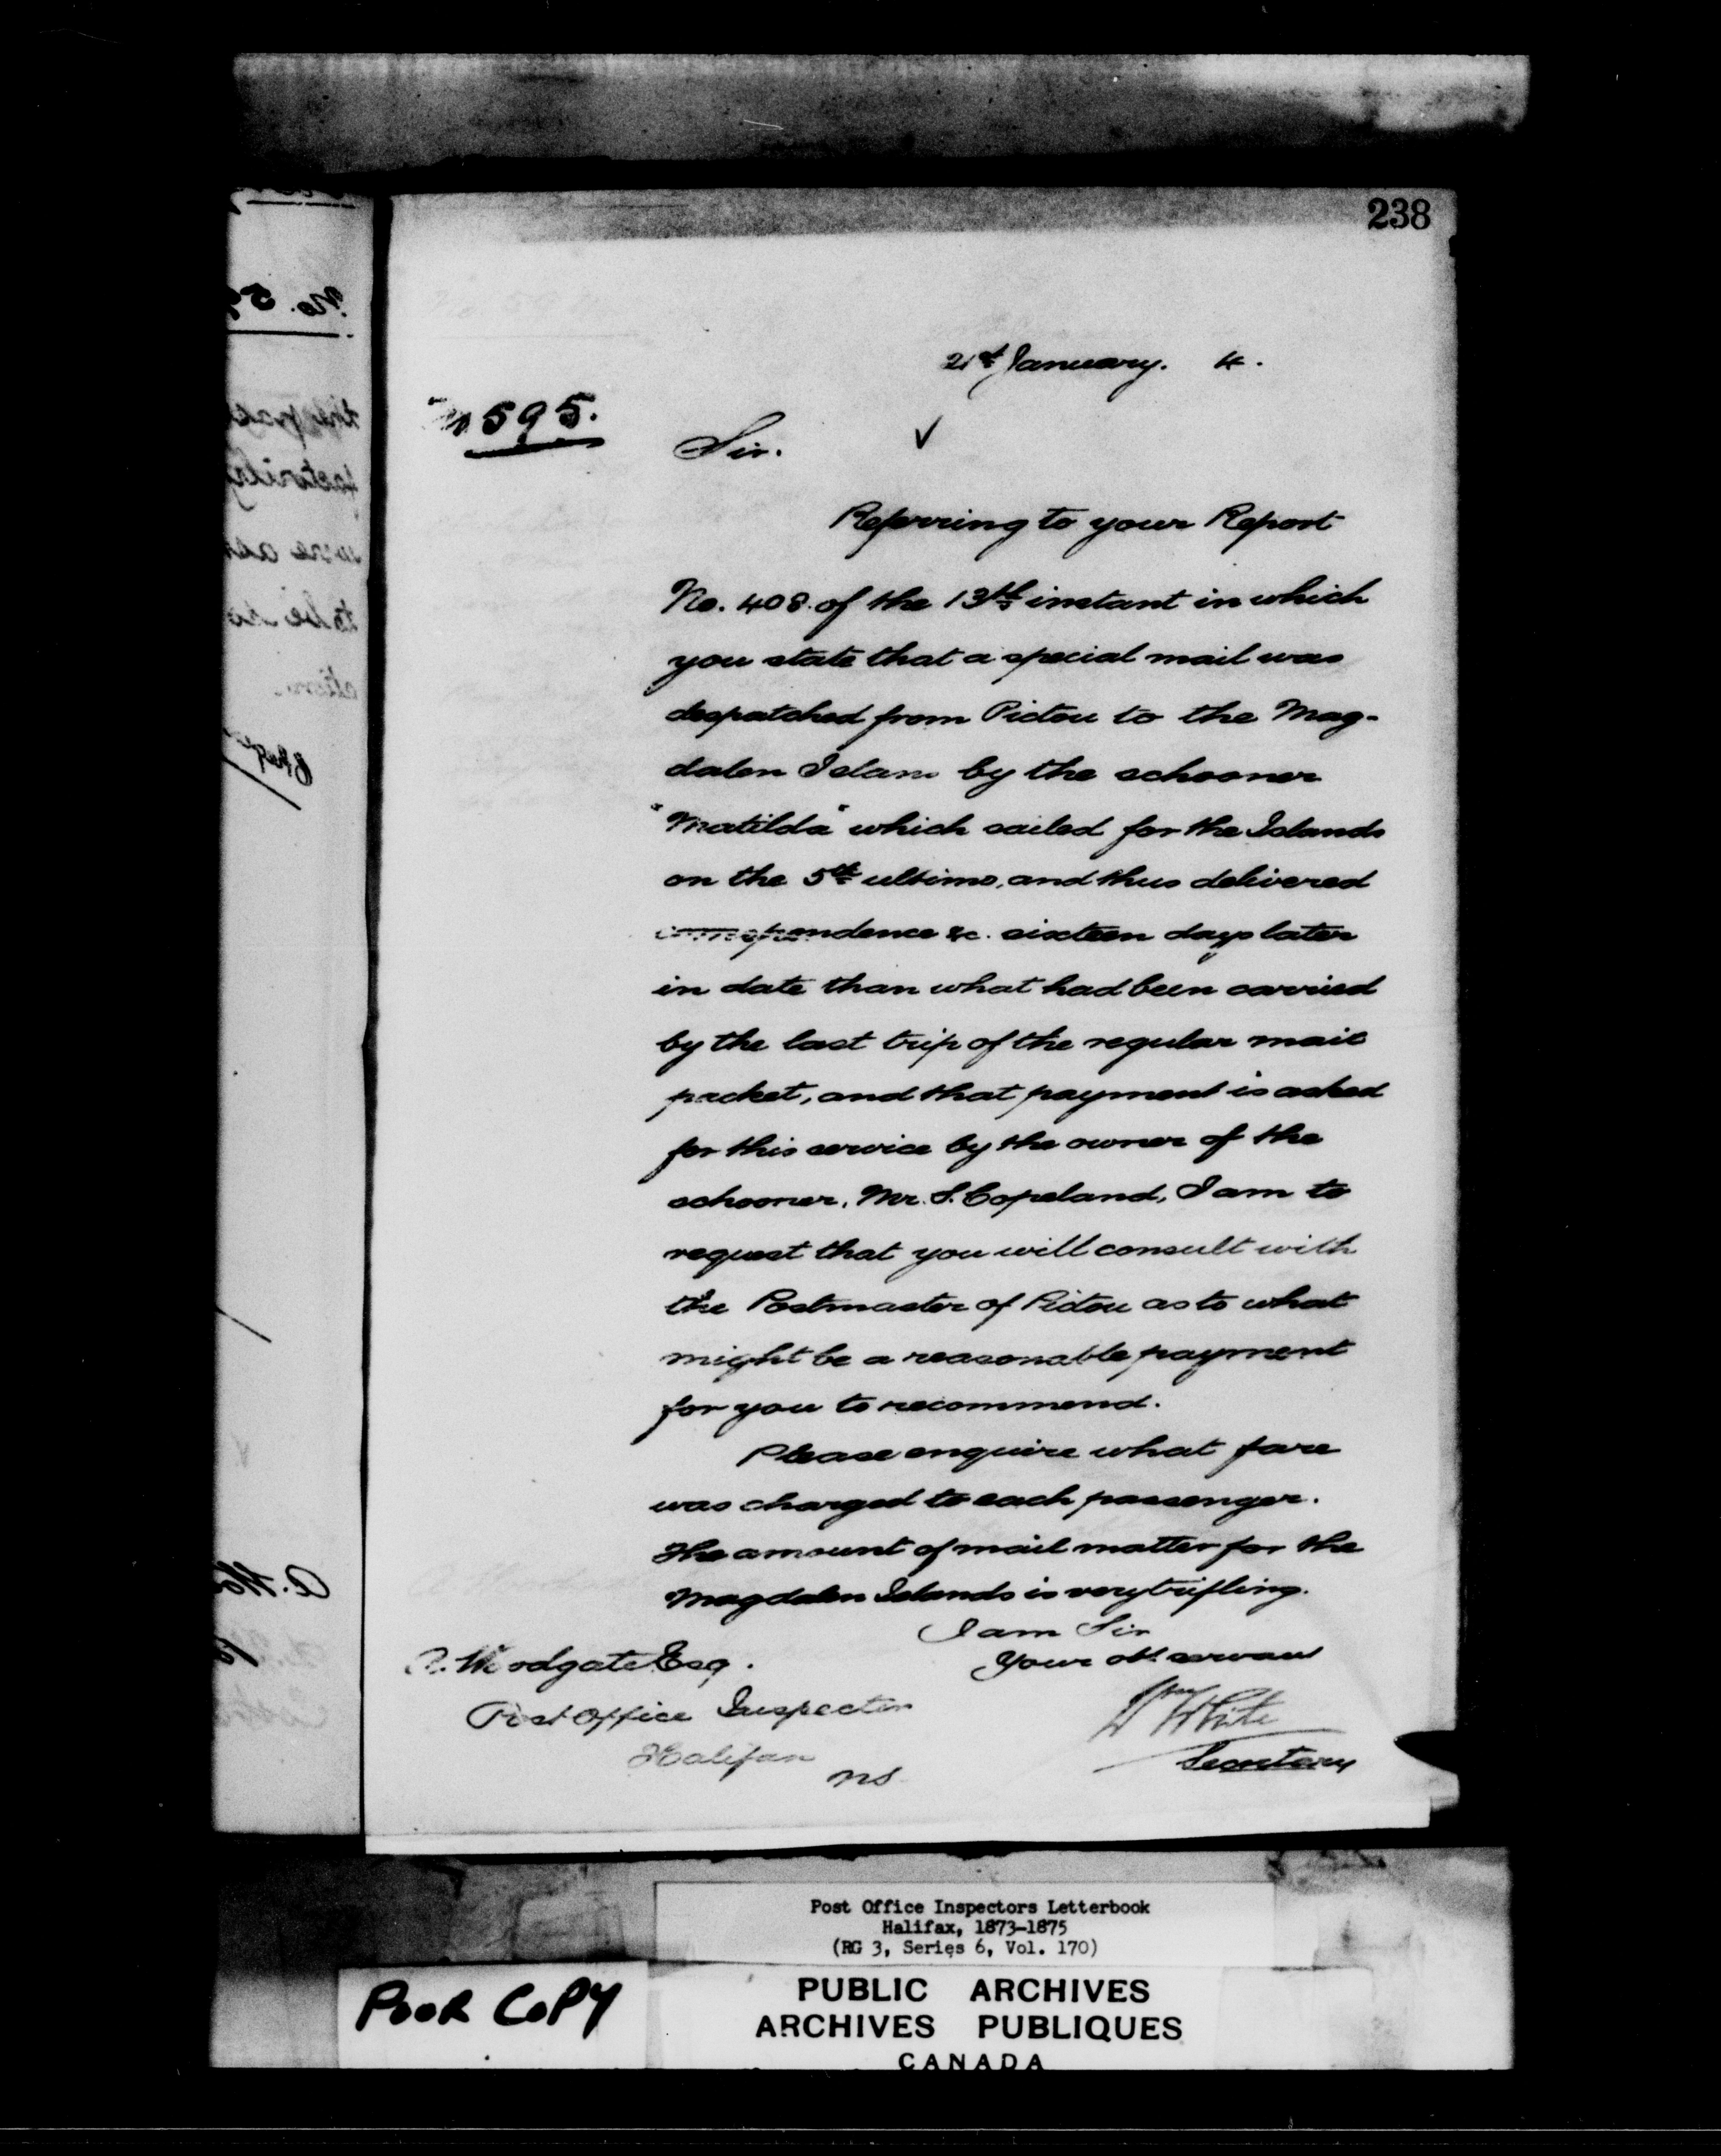 238
21st January. 4.
No 595.
Sir.
Referring to your Report
No. 408. of the 13th instant in which
you state that a special mail was
despatched from Pictou to the Mag-
dalen Islans by the schooner
"Matilda" which sailed for the Islands
on the 5th ultimo, and thus delivered
correspondence &c. sixteen days later
in date than what had been carried
by the last trip of the regular mail
packet, and that payment is asked
for this service by the owner of the
schooner, Mr. S. Copeland, I am to
request that you will consult with
the Postmaster of Pictou as to what
might be a reasonable payment
for you to recommend.
Please enquire what fare
was charged to each passenger.
The amount of mail matter for the
Magdalen Islands is very trifling.
I am Sir
Your obt servant
A. Woodgate Esq.
Post Office Inspector
Halifax
NS
Wm White
Secretary
Post Office Inspectors Letterbook
Halifax, 1873-1875
(RG 3, Series 6, Vol. 170)
POOR COPY
PUBLIC ARCHIVES
ARCHIVES PUBLIQUES
CANADA